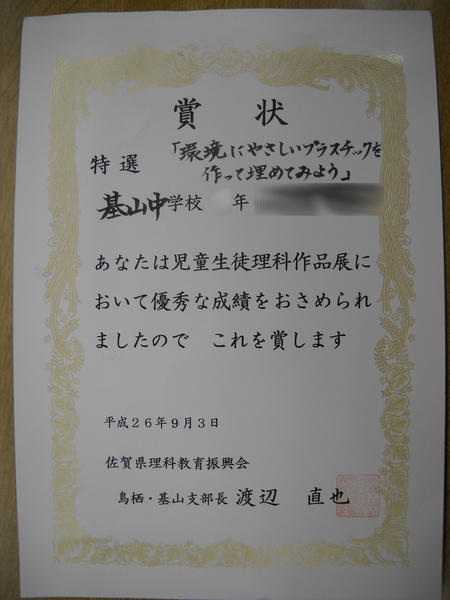 賞状
特選 「環境にやさしいプラスチックを
作って埋めてみよう」
基山中学校 年
あなたは児童生徒理科作品展に
おいて優秀な成績をおさめられ
ましたので これを賞します
平成26年9月3日
佐賀県理科教育振興会
鳥栖・基山支部長 渡辺 直也